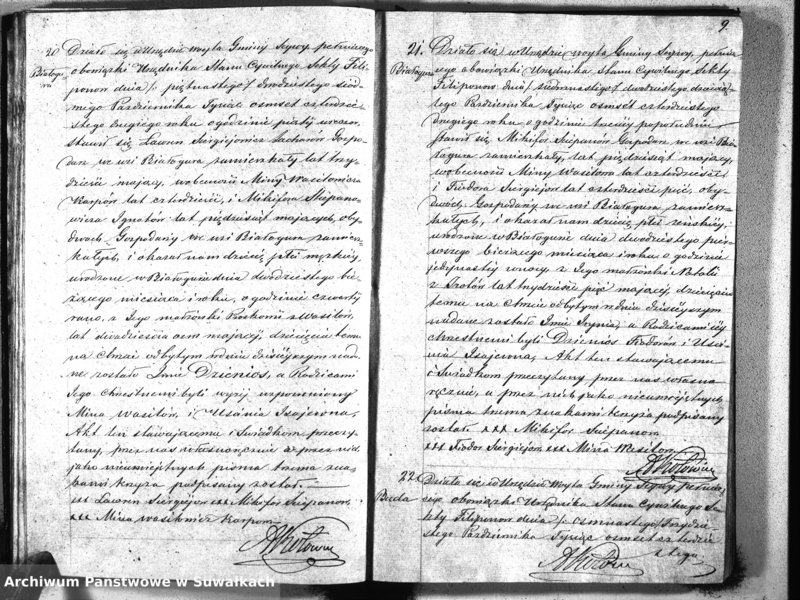 20
Białogu
ra
Działo się w Urzędzie Woyta Gminy Sejwy pełniącego
obowiązki Urzędnika Stanu Cywilnego Sekty Fili-
ponow dnia piętnastego / dwudziestego siód-
mego Pazdziernika Tysiąc osmset czterdzie-
stego drugiego roku o godzinie piątej wieczor.
Stawił się Lawren Siergiejowicz Gospo-
darz we wsi Białogura zamieszkały lat trzy-
dzieści mający, w obecności Miny Wasilowicza
Karpow lat czterdzieści, i Mikifora Stiepano-
wicza Ignatow lat pięćdziesiąt mających, oby-
dwoch Gospodarzy we wsi Białogura zamiesz-
kałych, i okazał nam dziecię płci męzkiej,
urodzone w Białogurze dnia dwudziestego bie-
żącego miesiąca i roku, o godzinie czwartej
rano, z Jego małżonki z Wasilow,
lat dwadzieścia osm mającej, dziecięciu temu
na Chrzcie odbytym w dniu dzisiejszym nada-
ne zostało Imie Dzienios, a Rodzicami
Jego Chrzestnemi byli wyżej wspomniony
Mina Wasilow, i Ustinia Isajewna,
Akt ten stawającemu i Swiadkom przeczy-
tany, przez nas własnoręcznie a przez nich
jako nieumiejętnych pisma trzema zna-
kami krzyża podpisany został.
xxx Lawren Siergiejow xxx Mikifor Stiepanow
xxx Mina Wasilowicz Karpow
9.
21.
Białogura
Działo się w Urzędzie Woyta Gminy Sejwy, pełnią-
cego obowiązki Urzędnika Stanu Cywilnego Sekty
Filiponow dnia siedmnastego / dwudziestego dziewią-
tego Pazdziernika Tysiąc osmset czterdziestego
drugiego roku o godzinie trzeciej popołudniu
Stawił się Mikifor Stiepanow Gospodarz we wsi Bia-
łogura zamieszkały, lat pięćdziesiąt mający,
w obecności Miny Wasilow lat czterdzieści
i Fiodora Siergiejow lat czterdzieści pięć, oby-
dwoch Gospodarzy we wsi Białogura zamiesz-
kałych, i okazał nam dziecię płci żeńskiej,
urodzone w Białogurze dnia dwudziestego pier-
wszego bieżącego miesiąca i roku o godzinie
jedenastej w nocy z Jego małżonki Natalii
lat trzydzieści pięć mającej, dziecięciu
temu na Chrzcie odbytym w dniu dzisiejszym
nadane zostało Imie a Rodzicami jej
Chrzestnemi byli Dzienios Fiodorow i Usti-
nia Isajewna, Akt ten stawającemu
i Swiadkom przeczytany przez nas własno-
ręcznie, a przez nich jako nieumiejętnych
pisma trzema znakami krzyża podpisany
został. xxx Mikifor Stiepanow
xxx Fiodor Siergiejow xxx Mina Wasilow
22.
Buda
Działo się w Urzędzie Woyta Gminy Sejwy pełnią-
cego obowiązki Urzędnika Stanu Cywilnego Se-
kty Filiponow dnia osmnastego / trzydzie-
stego Pazdziernika Tysiąc osmset czterdzie-
stego
Archiwum Państwowe w Suwałkach